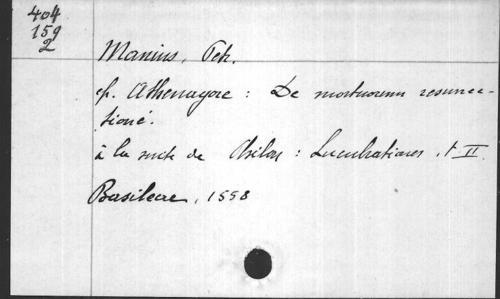 404
159
2
Manius, Petr.
cf. Athenagore : De mortuorum resurrec-
tioné.
à la suite de Philon : Lucubrationes, t II
Basileae, 1558